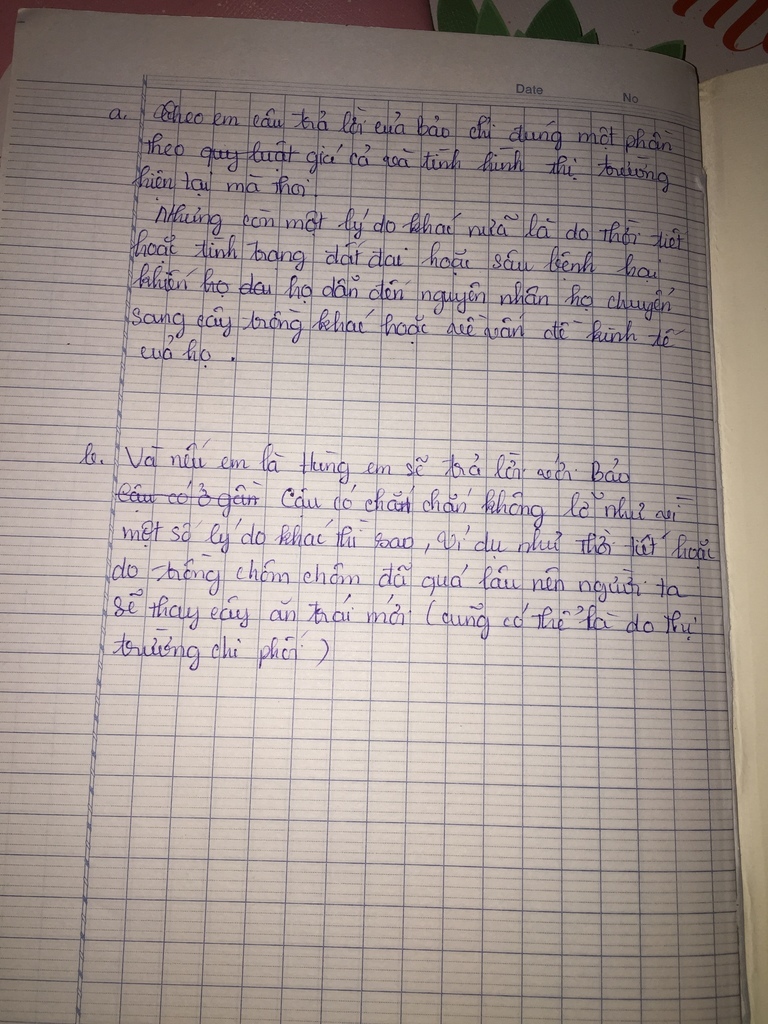 Date
No
a. Theo em câu trả lời của Bảo chỉ đúng một phần
theo quy luật giá cả và tình hình thị trường
hiện tại mà thôi.
Nhưng còn một lý do khác nữa là do thời tiết
hoặc tình trạng đất đai hoặc sâu bệnh hại
khiến họ dẫn đến nguyên nhân họ chuyển
sang cây trồng khác hoặc về vấn đề kinh tế
của họ.
b. Và nếu em là Hưng em sẽ trả lời với Bảo
Cậu có chắn chắn không lỡ như vì
một số lý do khác thì sao, ví dụ như thời tiết hoặc
do trồng chôm chôm đã quá lâu nên người ta
sẽ thay cây ăn trái mới (cũng có thể là do thị
trường chi phối)